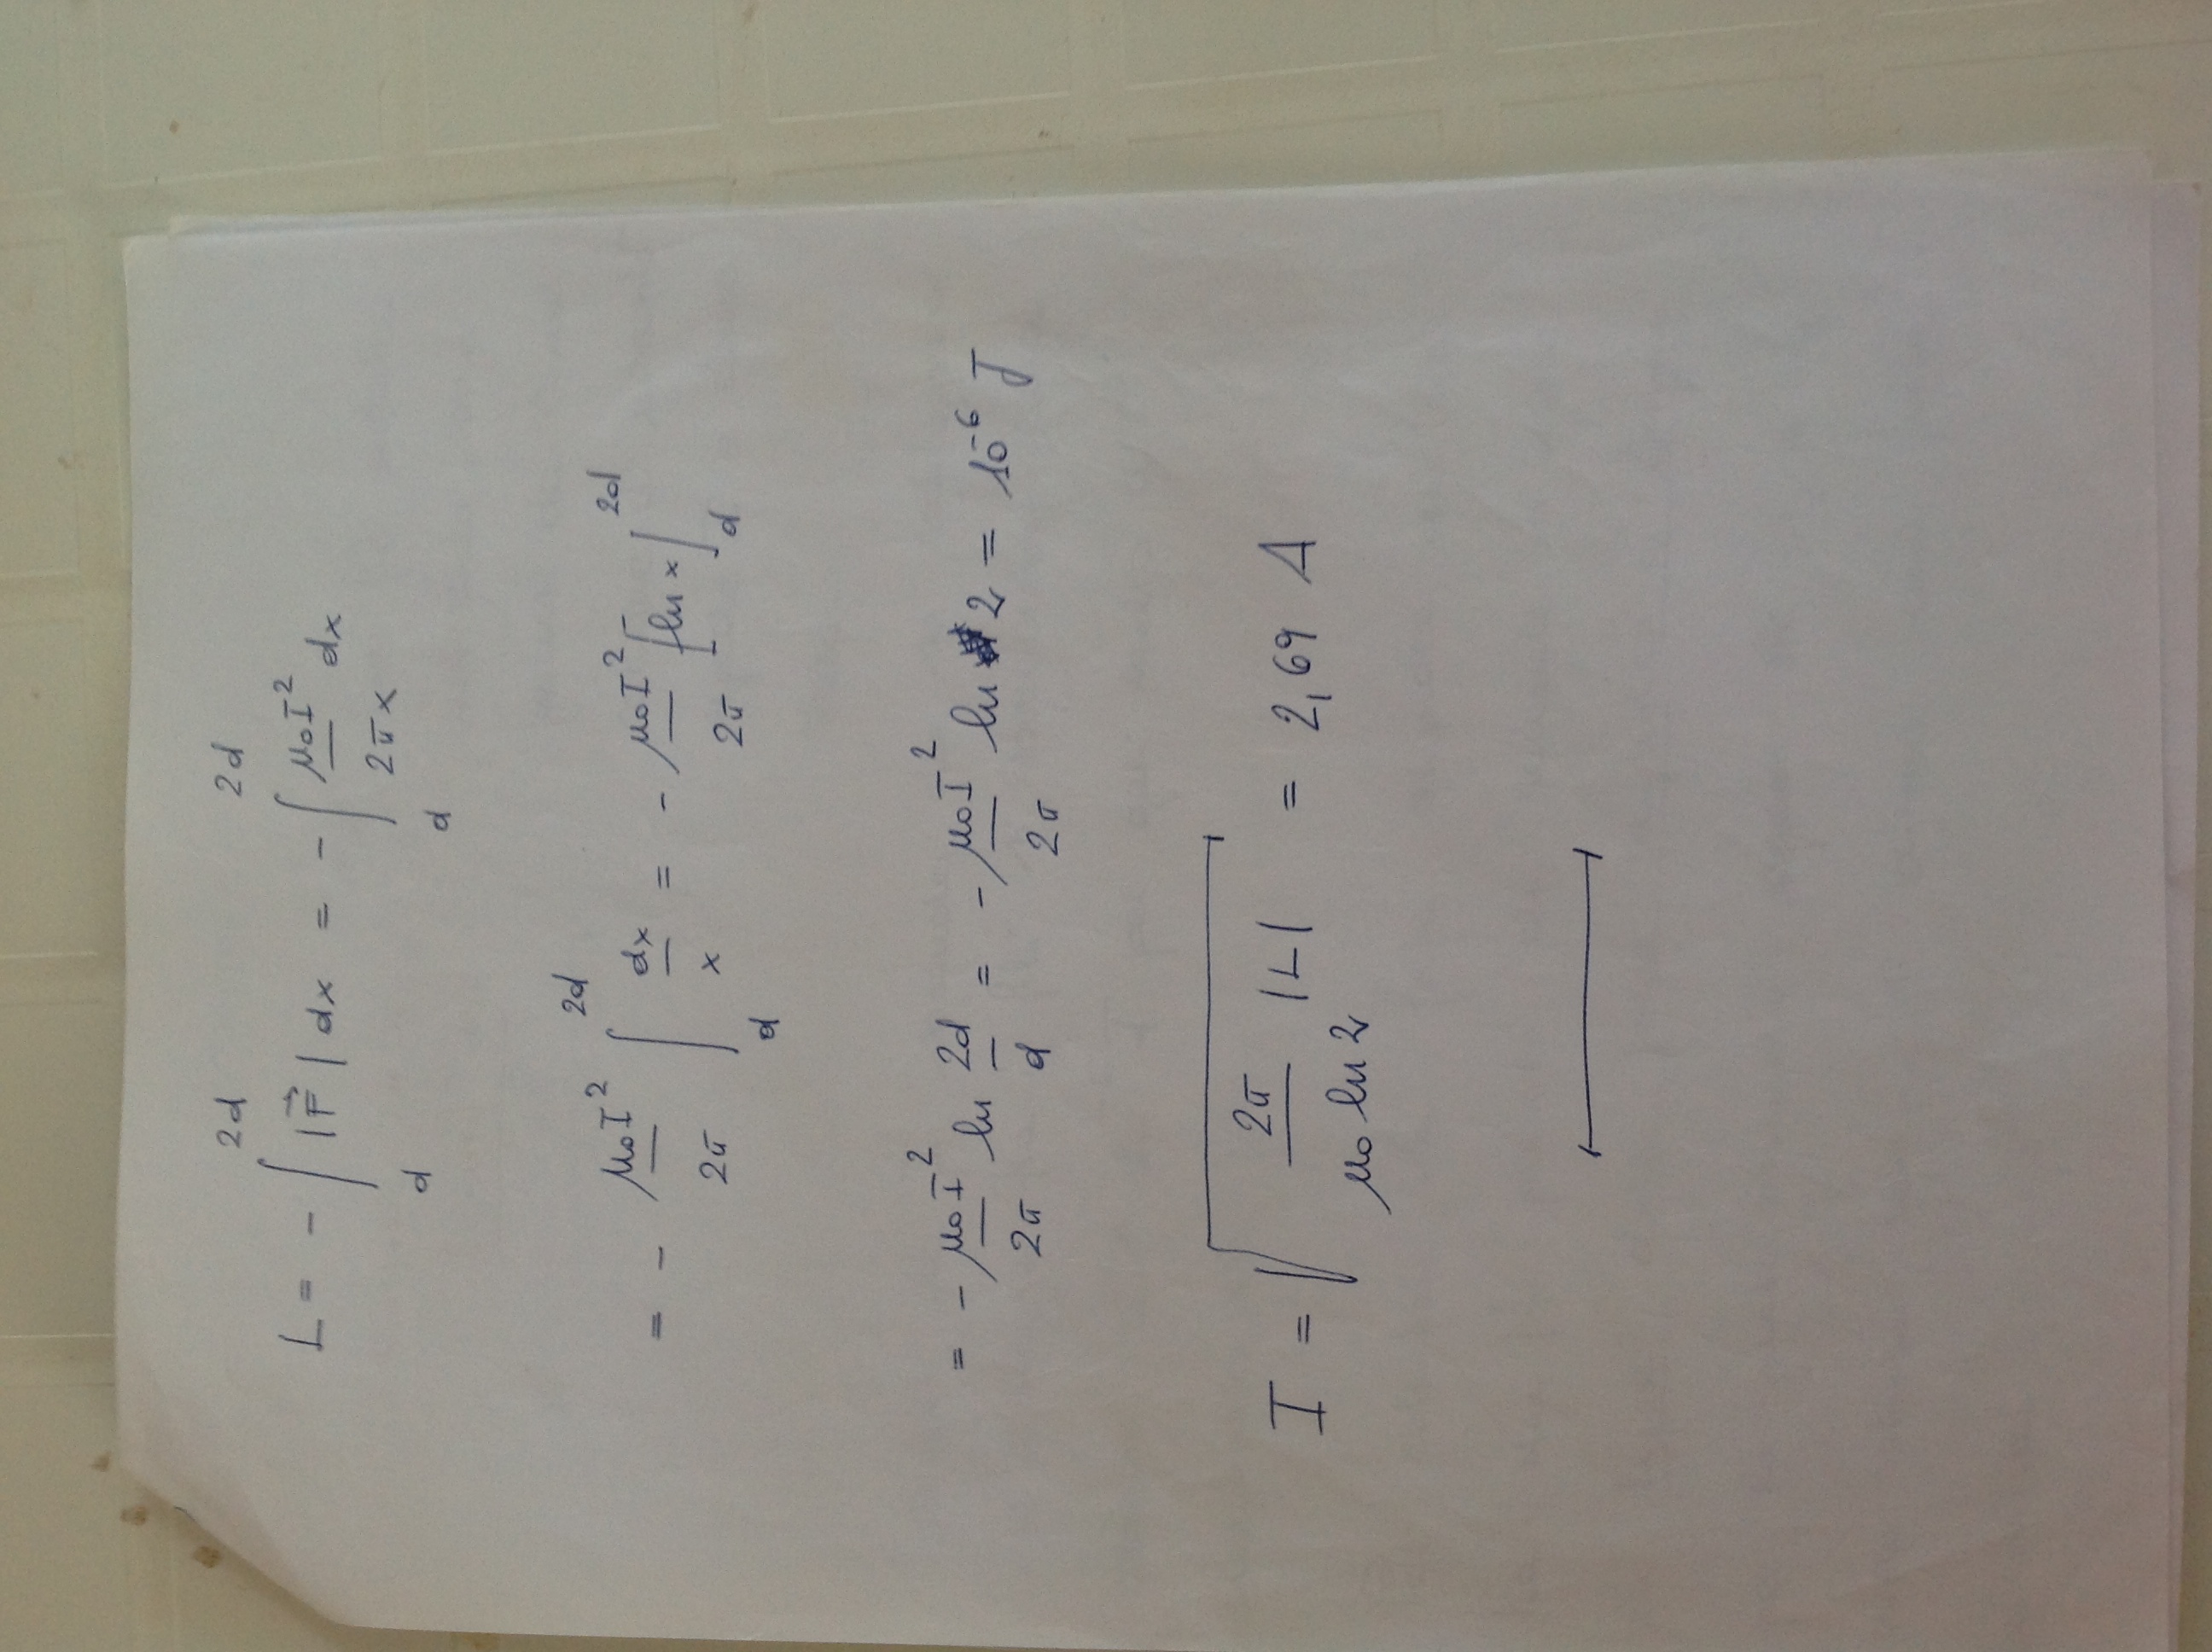 L = - ∫_d^{2d} |F⃗| dx = - ∫_d^{2d} μ₀I²/2πx dx
= - μ₀I²/2π ∫_d^{2d} dx/x = - μ₀I²/2π [ln x]_d^{2d}
= - μ₀I²/2π ln 2d/d = - μ₀I²/2π ln 2 = 10⁻⁶ J
I = √(2π/μ₀ ln 2 |L|) = 2,69 A